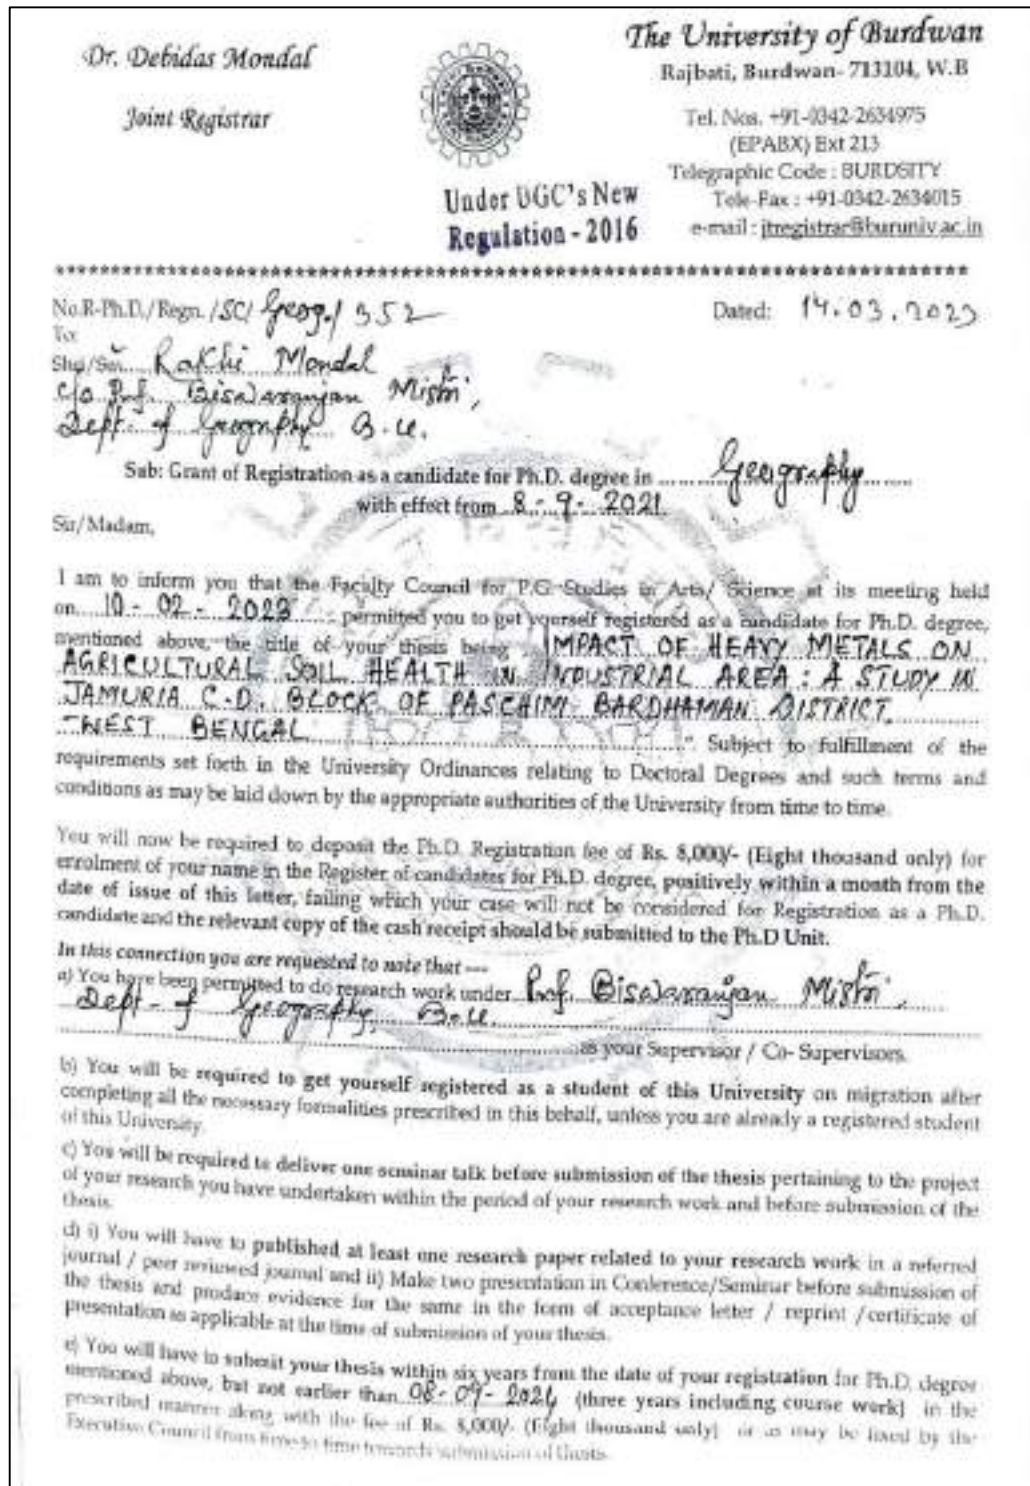 Dr. Debidas Mondal
Joint Registrar
Under UGC's New
Regulation - 2016
The University of Burdwan
Rajbati, Burdwan- 713104, W.B
Tel. Nos. +91-0342-2634975
(EPABX) Ext 213
Telegraphic Code : BURDSITY
Tele-Fax : +91-0342-2634015
e-mail : jtregistrar@buruniv.ac.in
No.R-Ph.D./Regn. /SC/ Geog./ 352
Dated: 14.03.2023
To:
Rakhi Mondal
C/o Prof. Biswaranjan Mistri,
Dept. of Geography B.U.
Sub: Grant of Registration as a candidate for Ph.D. degree in ...... Geography ......
with effect from 8 - 9 - 2021
Sir/Madam,
I am to inform you that the Faculty Council for P.G. Studies in Arts/ Science at its meeting held
on 10 - 02 - 2023 permitted you to get yourself registered as a candidate for Ph.D. degree,
mentioned above, the title of your thesis being "IMPACT OF HEAVY METALS ON
AGRICULTURAL SOIL HEALTH IN INDUSTRIAL AREA : A STUDY IN
JAMURIA C.D. BLOCK OF PASCHIM BARDHAMAN DISTRICT.
WEST BENGAL ". Subject to fulfillment of the
requirements set forth in the University Ordinances relating to Doctoral Degrees and such terms and
conditions as may be laid down by the appropriate authorities of the University from time to time.
You will now be required to deposit the Ph.D. Registration fee of Rs. 8,000/- (Eight thousand only) for
enrolment of your name in the Register of candidates for Ph.D. degree, positively within a month from the
date of issue of this letter, failing which your case will not be considered for Registration as a Ph.D.
candidate and the relevant copy of the cash receipt should be submitted to the Ph.D Unit.
In this connection you are requested to note that ---
a) You have been permitted to do research work under Prof. Biswaranjan Mistri,
Dept. of Geography, B.U.
as your Supervisor / Co- Supervisors.
b) You will be required to get yourself registered as a student of this University on migration after
completing all the necessary formalities prescribed in this behalf, unless you are already a registered student
of this University.
c) You will be required to deliver one seminar talk before submission of the thesis pertaining to the project
of your research you have undertaken within the period of your research work and before submission of the
thesis.
d) i) You will have to published at least one research paper related to your research work in a referred
journal / peer reviewed journal and ii) Make two presentation in Conference/Seminar before submission of
the thesis and produce evidence for the same in the form of acceptance letter / reprint /certificate of
presentation as applicable at the time of submission of your thesis.
e) You will have to submit your thesis within six years from the date of your registration for Ph.D. degree
mentioned above, but not earlier than 08-09-2024 (three years including course work) in the
prescribed manner along with the fee of Rs. 8,000/- (Eight thousand only) or as may be fixed by the
Executive Council from time to time towards submission of thesis.